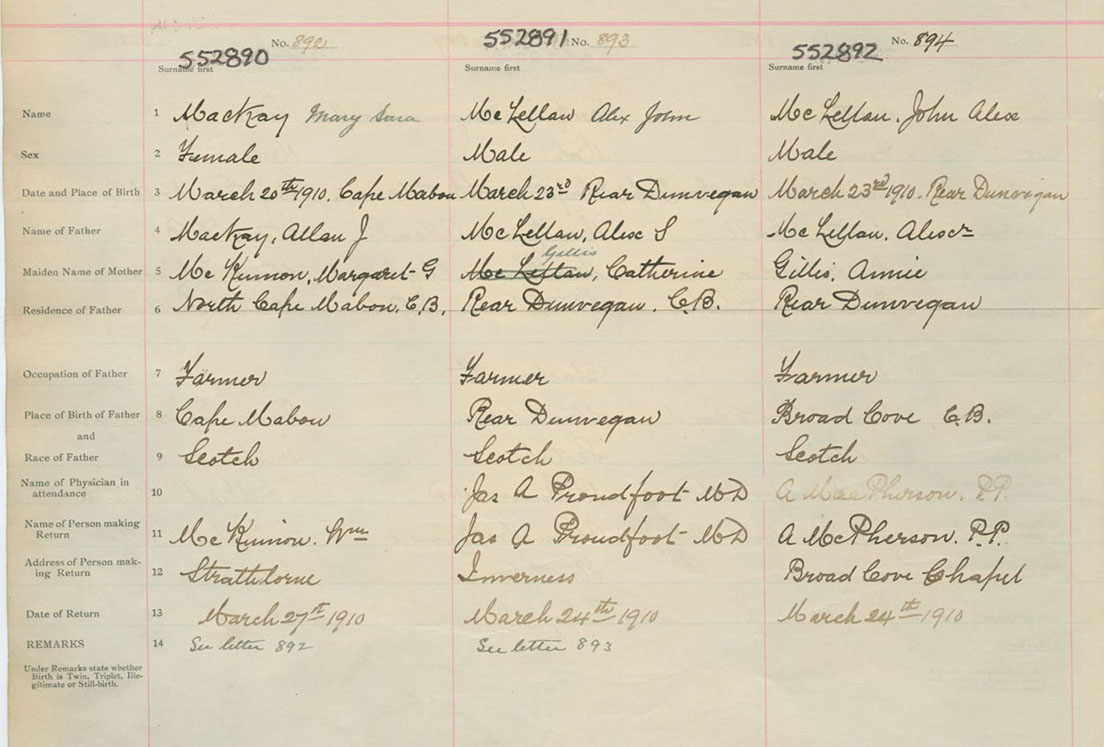 552890 No. 892 552891 No. 893 552892 No. 894
Surname first Surname first Surname first
Name 1 MacKay Mary Sara McLellan Alex John McLellan, John Alex
Sex 2 Female Male Male
Date and Place of Birth 3 March 20th 1910. Cape Mabou March 23rd Rear Dunvegan March 23rd 1910. Rear Dunvegan
Name of Father 4 MacKay, Allan J McLellan, Alex S McLellan, Alexr
Gillis
Maiden Name of Mother 5 McKinnon, Margaret G McLellan, Catherine Gillis, Annie
Residence of Father 6 North Cape Mabou, C.B. Rear Dunvegan. C.B. Rear Dunvegan
Occupation of Father 7 Farmer Farmer Farmer
Place of Birth of Father 8 Cape Mabou Rear Dunvegan Broad Cove C.B.
and
Race of Father 9 Scotch Scotch Scotch
Name of Physician in
attendance 10 Jas A Proudfoot MD A MacPherson. P.P.
Name of Person making
Return 11 McKinnon. Wm Jas A Proudfoot MD A McPherson. P.P.
Address of Person mak-
ing Return 12 Strathlorne Inverness Broad Cove Chapel
Date of Return 13 March 27th 1910 March 24th 1910 March 24th 1910
REMARKS 14 See letter 892 See letter 893
Under Remarks state whether
Birth is Twin, Triplet, Ille-
gitimate or Still-birth.